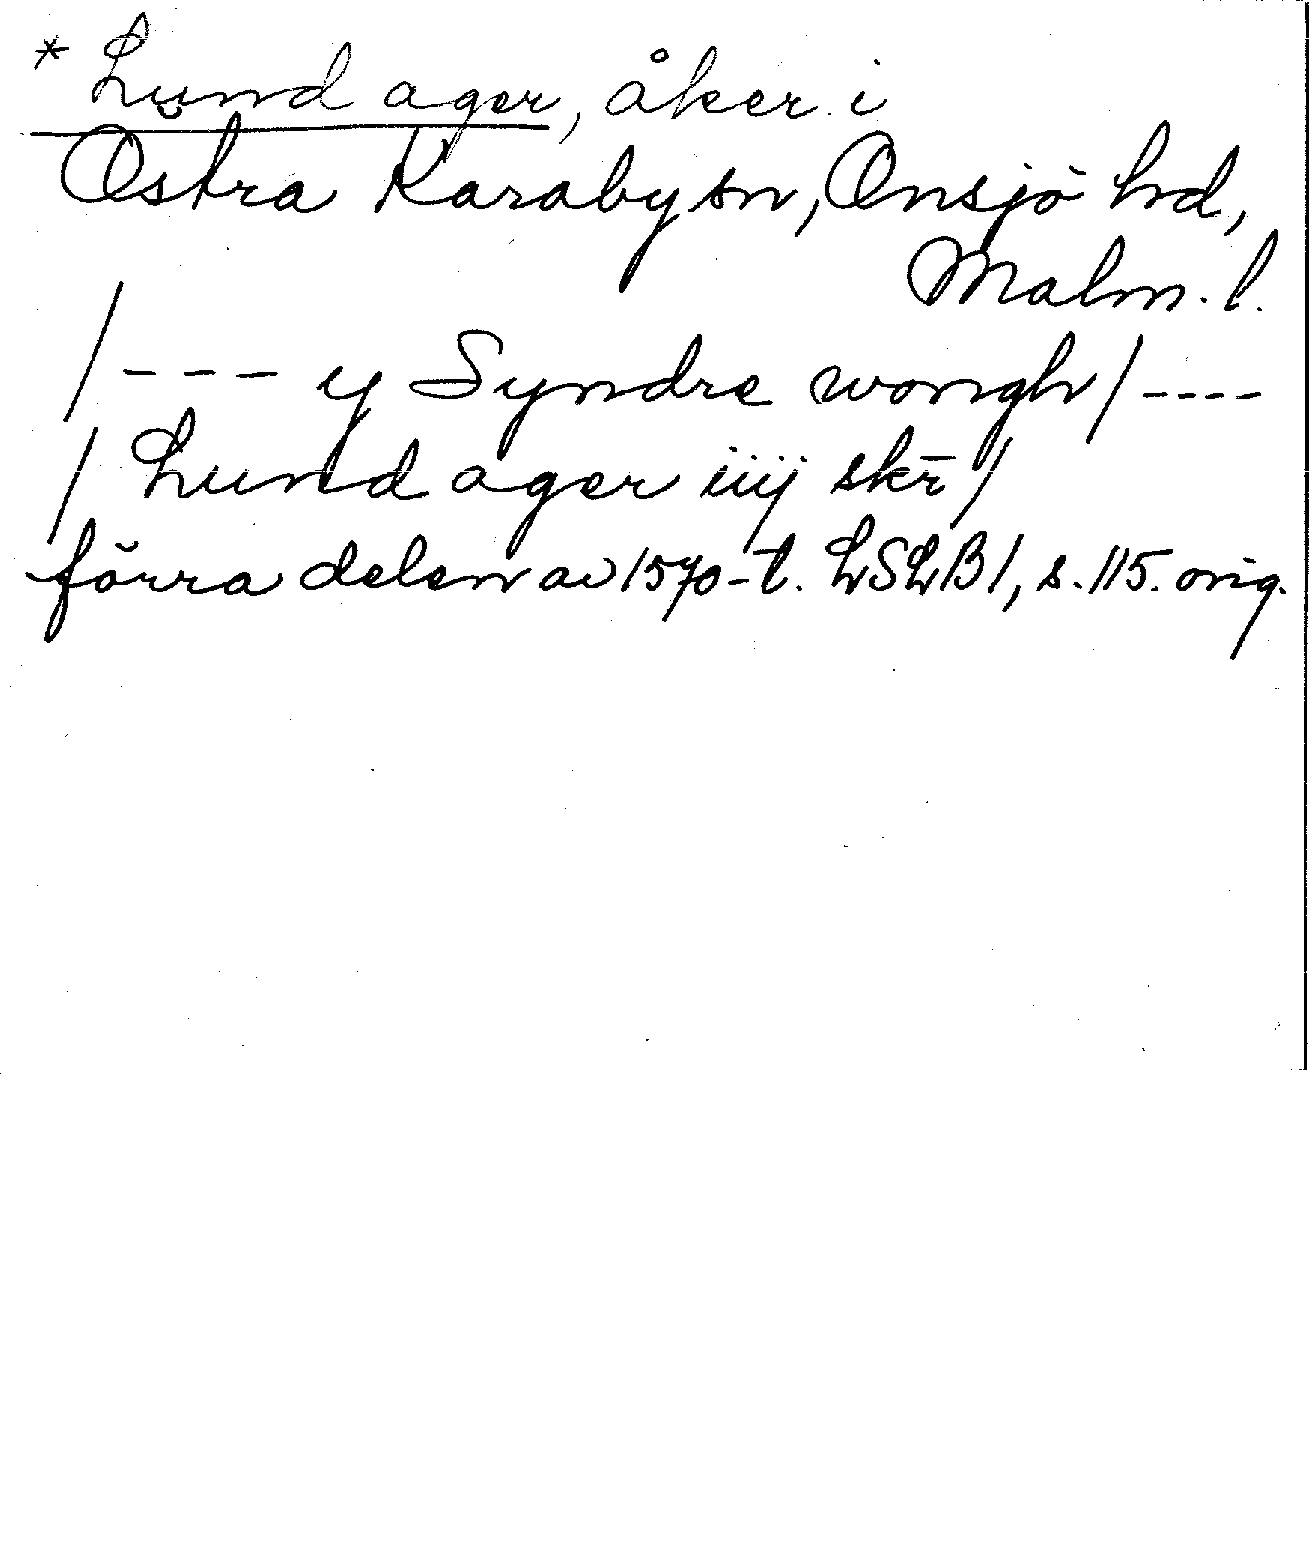 * Lund ager, åker i
Östra Karaby sn, Onsjö hd,
Malm. l.
/--- y Syndre wongh/----
/ Lund ager iiij skr̄/
förra delen av 1570-t. LSLB1, s. 115. orig.